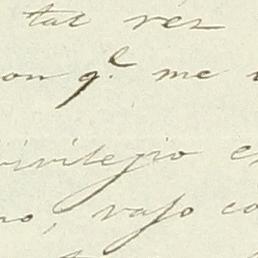 tal vez
on q.e me
privilegio e
no, vaso co